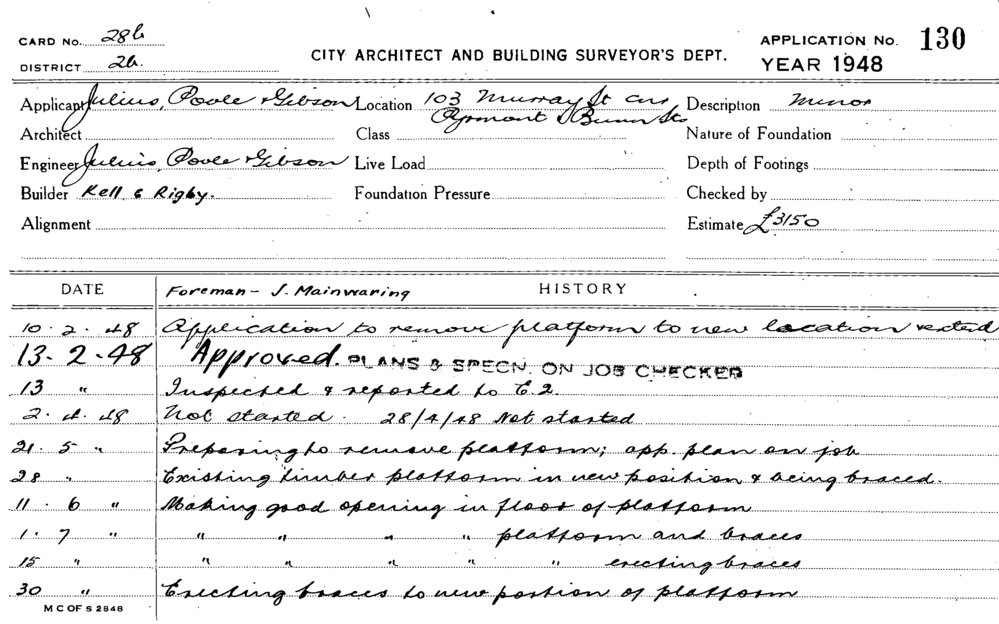 CARD No. 28b
DISTRICT 2b.
CITY ARCHITECT AND BUILDING SURVEYOR'S DEPT.
APPLICATION No. 130
YEAR 1948
Applicant Julius, Poole & Gibson Location 103 Murray St cnr Pyrmont & Bunn Sts Description Minor
Architect Class Nature of Foundation
Engineer Julius, Poole & Gibson Live Load Depth of Footings
Builder Kell & Rigby. Foundation Pressure Checked by
Alignment Estimate £3150
DATE Foreman - J. Mainwaring HISTORY
10.2.48 Application to remove platform to new location & extend
13-2-48 Approved. PLANS & SPECN. ON JOB CHECKED
13 " Inspected & reported to E.2.
2.4.48 Not started. 28/4/48 Not started
21.5 " Preparing to remove platform; app. plan on job
28 " Existing timber platform in new position & being braced.
11.6 " Making good opening in floor of platform
1.7 " " " " " platform and braces
15 " " " " " " erecting braces
30 " Erecting braces to new portion of platform
M C OF S 2848